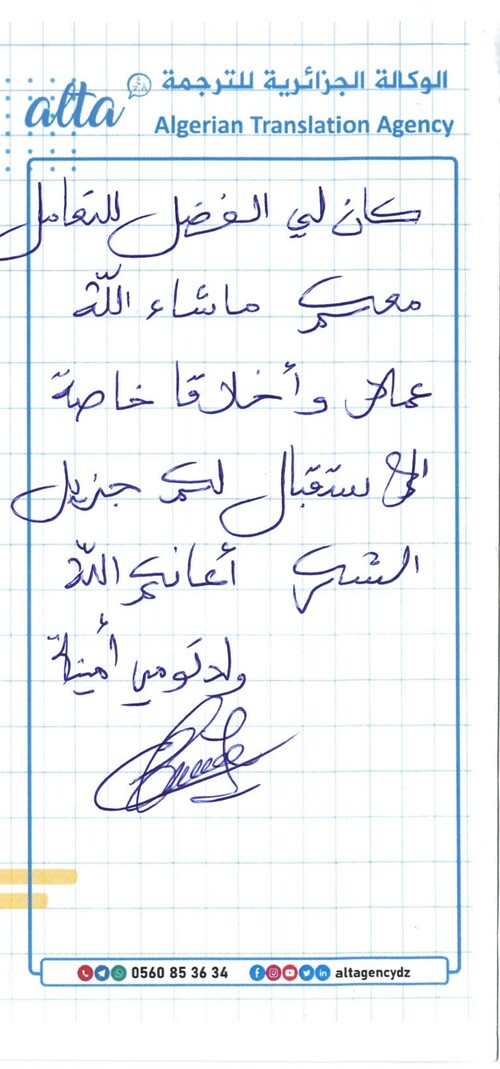 الوكالة الجزائرية للترجمة
alta
Algerian Translation Agency
كان لي الفضل للتعامل
معكم ماشاء الله
عملا وأخلاقا خاصة
الاستقبال لكم جزيل
الشكر أعانكم الله
ولد تومي أمينة
0560 85 36 34 altagencydz